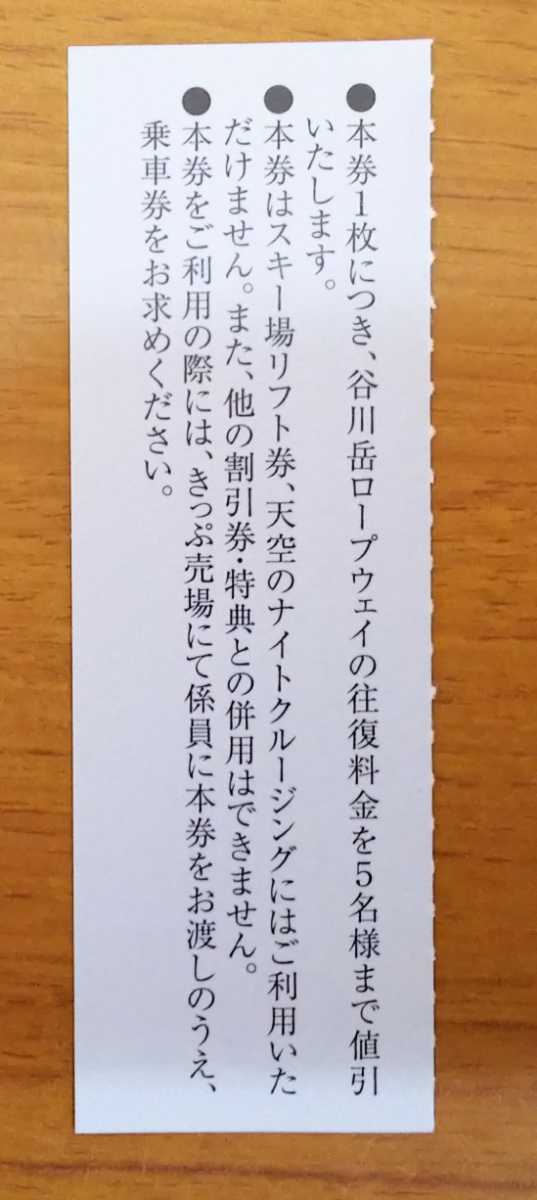 ●本券1枚につき、谷川岳ロープウェイの往復料金を5名様まで値引
いたします。
●本券はスキー場リフト券、天空のナイトクルージングにはご利用いた
だけません。また、他の割引券・特典との併用はできません。
●本券をご利用の際には、きっぷ売場にて係員に本券をお渡しのうえ、
乗車券をお求めください。